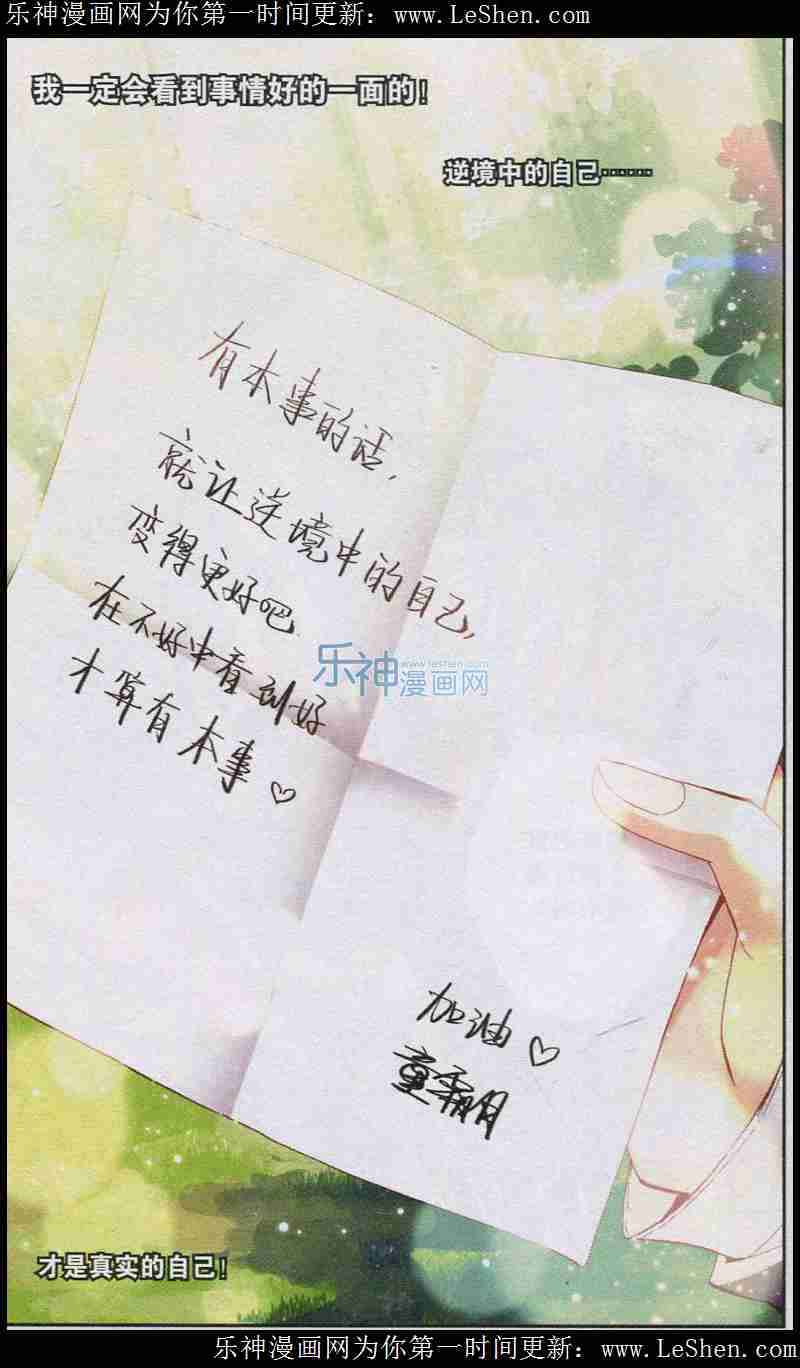 乐神漫画网为你第一时间更新：www.LeShen.com
我一定会看到事情好的一面的！
逆境中的自己……
有本事的话，
就让逆境中的自己，
变得更好吧
在不好中看到好
才算有本事♡
乐神 www.leshen.com
漫画网
加油♡
童霜月
才是真实的自己！
乐神漫画网为你第一时间更新：www.LeShen.com